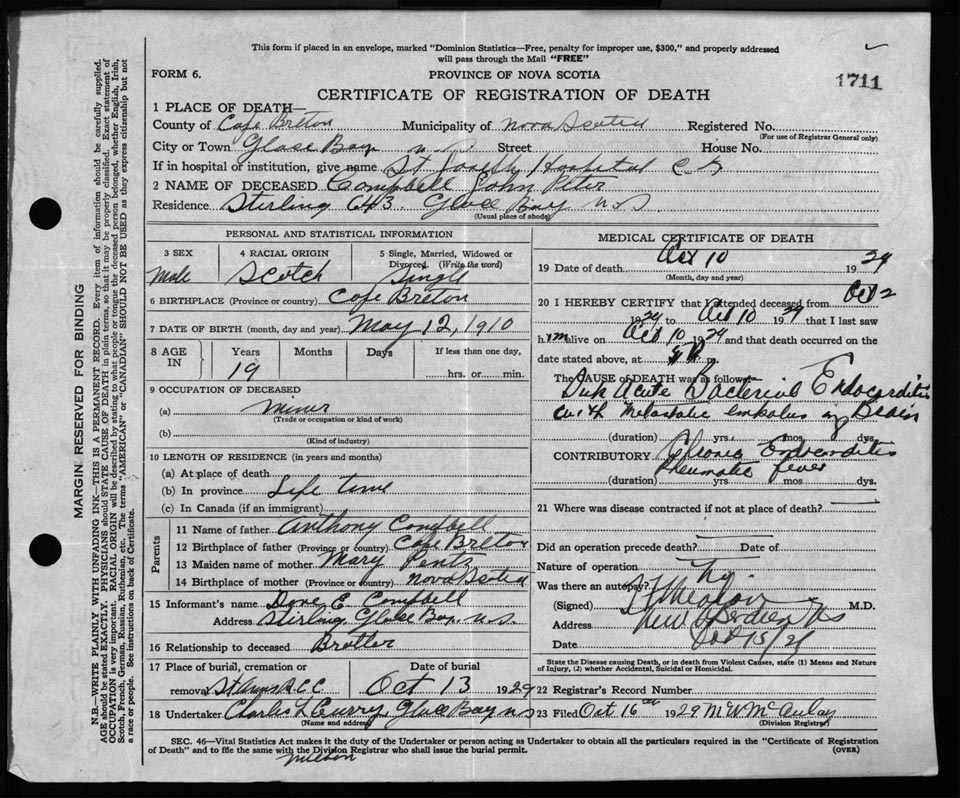 This form if placed in an envelope, marked "Dominion Statistics—Free, penalty for improper use, $300," and properly addressed
will pass through the Mail "FREE"
FORM 6. PROVINCE OF NOVA SCOTIA 1711
CERTIFICATE OF REGISTRATION OF DEATH
1 PLACE OF DEATH—
County of Cape Breton Municipality of Nova Scotia Registered No.
(For use of Registrar General only)
City or Town Glace Bay N.S. Street House No.
If in hospital or institution, give name St Joseph Hospital
2 NAME OF DECEASED Campbell John Peter
Residence Sterling 643. Glace Bay N.S
(Usual place of abode)
PERSONAL AND STATISTICAL INFORMATION
3 SEX 4 RACIAL ORIGIN 5 Single, Married, Widowed or
Divorced. (Write the word)
Male Scotch Single
6 BIRTHPLACE (Province or country) Cape Breton
7 DATE OF BIRTH (month, day and year) May 12, 1910
8 AGE IN Years Months Days If less than one day,
19 hrs. or min.
9 OCCUPATION OF DECEASED
(a) Miner
(Trade or occupation or kind of work)
(b)
(Kind of industry)
10 LENGTH OF RESIDENCE (in years and months)
(a) At place of death
(b) In province Life time
(c) In Canada (if an immigrant)
Parents
11 Name of father Anthony Campbell
12 Birthplace of father (Province or country) Cape Breton
13 Maiden name of mother Mary Pentz
14 Birthplace of mother (Province or country) Nova Scotia
15 Informant's name Dave E. Campbell
Address Sterling Glace Bay. N.S.
16 Relationship to deceased Brother
17 Place of burial, cremation or Date of burial
removal St Anns R C C Oct 13 1929
18 Undertaker Charles L Curry. Glace Bay NS
(Name and address)
MEDICAL CERTIFICATE OF DEATH
19 Date of death Oct 10 1929
(Month, day and year)
20 I HEREBY CERTIFY that I attended deceased from Oct 2
1929 Oct 10 1929 that I last saw
him alive on Oct 10 1929 and that death occurred on the
date stated above, at m.
The CAUSE of DEATH was as follows—
Sub Acute Bacterial Endocarditis
with metastatic embolus of Brain
(duration) yrs. mos. dys.
CONTRIBUTORY Chronic Endocarditis
Rheumatic fever
(duration) yrs mos dys.
21 Where was disease contracted if not at place of death?
Did an operation precede death? Date of
Nature of operation
Was there an autopsy? No
(Signed) M.D.
Address New Aberdeen NS
Date Oct 15/29
State the Disease causing Death, or in death from Violent Causes, state (1) Means and Nature
of Injury, (2) whether Accidental, Suicidal or Homicidal.
22 Registrar's Record Number
23 Filed Oct 16th 1929 M W McAulay
(Division Registrar)
SEC. 46—Vital Statistics Act makes it the duty of the Undertaker or person acting as Undertaker to obtain all the particulars required in the "Certificate of Registration
of Death" and to file the same with the Division Registrar who shall issue the burial permit. (OVER)
MARGIN RESERVED FOR BINDING
N.B.—WRITE PLAINLY WITH UNFADING INK—THIS IS A PERMANENT RECORD. Every item of information should be carefully supplied.
AGE should be stated EXACTLY. PHYSICIANS should STATE CAUSE OF DEATH in plain terms, so that it may be properly classified. Exact statement of
OCCUPATION is very important. RACIAL ORIGIN will be described by stating to what people or tongue the deceased person belonged, whether English, Irish,
Scotch, French, German, Russian, Ruthenian, etc. The terms "AMERICAN" or "CANADIAN" SHOULD NOT BE USED as they express citizenship but not
a race or people. See instructions on back of Certificate.